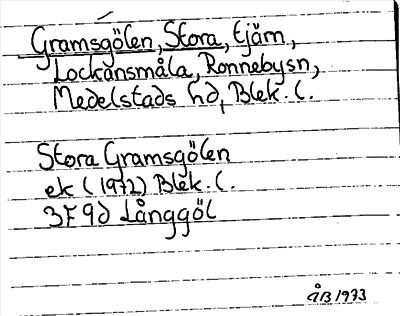 Gramsgölen, Stora, tjärn,
Lockansmåla, Ronnebysn,
Medelstads hd, Blek. l.
Stora Gramsgölen
ek (1972) Blek. l.
3F 9d Långgöl
ÅB 1973